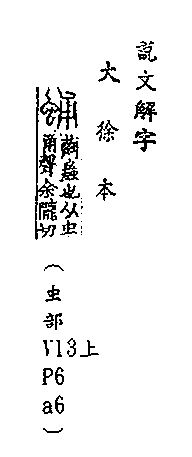 說文解字
大徐本
蛹 繭蟲也从虫
甬聲余隴切
(虫部
V13上
P6
a6)